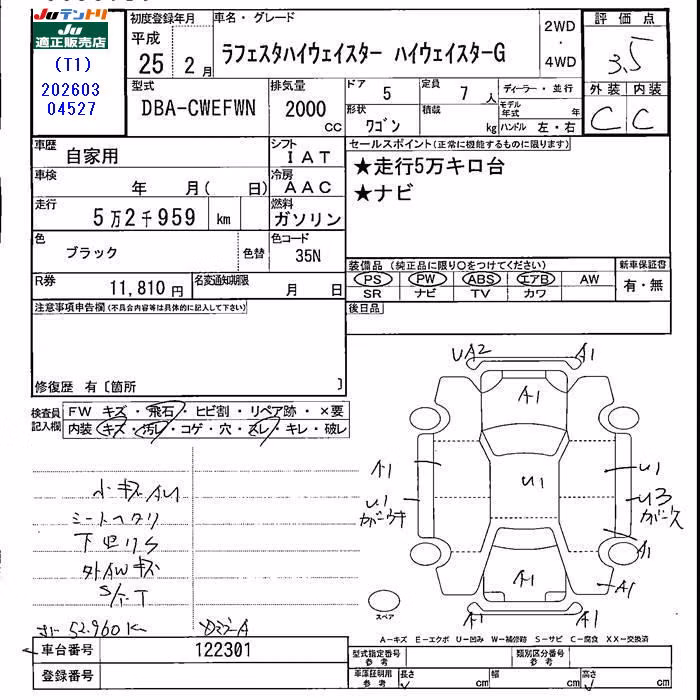 Juテントリ
Ju
適正販売店
(T1)
202603
04527
初度登録年月
平成
25 2月
車名・グレード
ラフェスタハイウェイスター ハイウェイスターG
2WD
・
4WD
評価点
3.5
外装 内装
C C
型式
DBA-CWEFWN
排気量
2000
CC
ドア
5
定員
7 人
形状
ワゴン
積載
kg
ディーラー・並行
モデル年式 年
ハンドル 左・右
車歴
自家用
シフト
IAT
車検
年 月( 日)
冷房
AAC
走行
5万2千959 km
燃料
ガソリン
色
ブラック
色替
色コード
35N
R券
11,810 円
名変通知期限
月 日
セールスポイント(正常に機能するものに限ります)
★走行5万キロ台
★ナビ
装備品 (純正品に限り○をつけてください)
PS PW ABS エアB AW
SR ナビ TV カワ
新車保証書
有・無
後日品
注意事項申告欄(不具合内容等は具体的に記入して下さい)
修復歴 有〔箇所 〕
検査員
記入欄
FW キズ・飛石・ヒビ割・リペア跡・×要
内装 キズ・汚レ・コゲ・穴・スレ・キレ・破レ
UA2 A1
A1
A1 U1 U1
U1 U3
A1
A1
A1
A1 A1
小キズAU
シートヘタリ
外AWキズ
52.960K
スペア
A-キズ E-エクボ U-凹み W-補修跡 S-サビ C-腐食 XX-交換済
車台番号
122301
登録番号
型式指定番号
参考
類別区分番号
参考
車庫証明用
参考
長さ
cm
幅
cm
高さ
cm